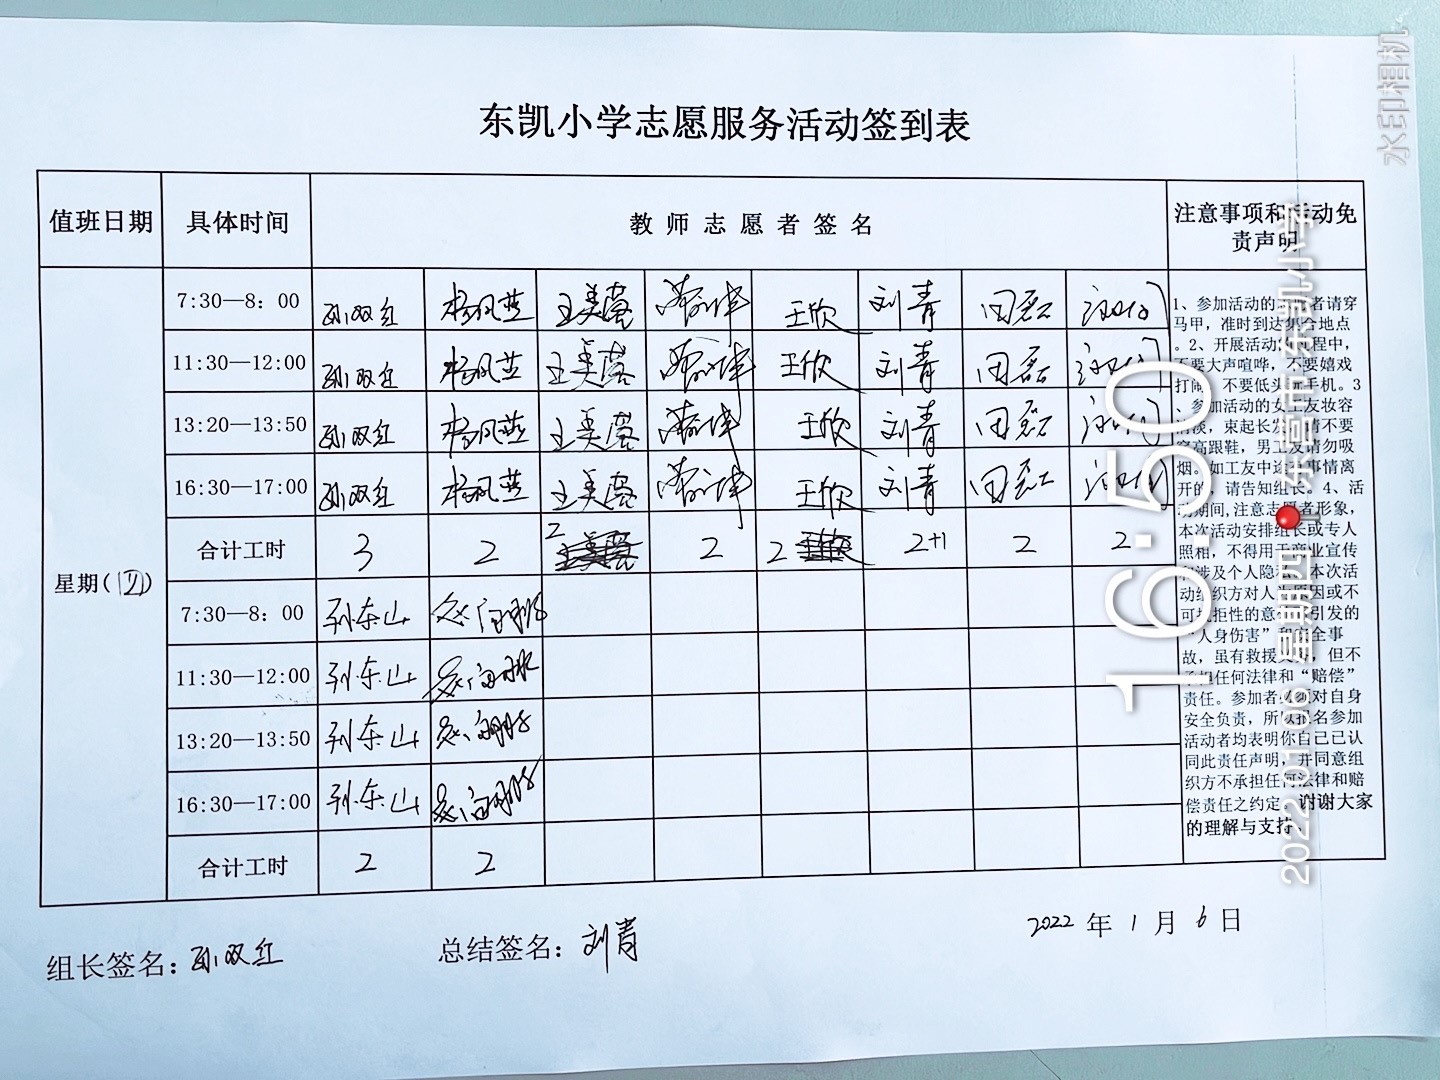 东凯小学志愿服务活动签到表
值班日期 具体时间 教师志愿者签名 注意事项和活动免
责声明
7:30—8:00 孙双红 杨凤燕 王美蓉 王欣 刘青 田磊
11:30—12:00 孙双红 杨凤燕 王美蓉 王欣 刘青 田磊
13:20—13:50 孙双红 杨凤燕 王美蓉 王欣 刘青 田磊
16:30—17:00 孙双红 杨凤燕 王美蓉 王欣 刘青 田磊
合计工时 3 2 2 2 2 2+1 2 2
星期(四)
7:30—8:00 孙东山
11:30—12:00 孙东山
13:20—13:50 孙东山
16:30—17:00 孙东山
合计工时 2 2
1、参加活动的志愿者请穿
马甲，准时到达集合地点
。2、开展活动过程中，
不要大声喧哗，不要嬉戏
打闹，不要低头玩手机。3
、参加活动的女工友妆容
清淡，束起长发，请不要
穿高跟鞋，男工友请勿吸
烟。如工友中途有事情离
开的，请告知组长。4、活
动期间,注意志愿者形象，
本次活动安排组长或专人
照相，不得用于商业宣传
和涉及个人隐私。本次活
动组织方对人为原因或不
可抗拒性的意外引发的
“人身伤害”和安全事
故，虽有救援义务，但不
承担任何法律和“赔偿”
责任。参加者必须对自身
安全负责，所以报名参加
活动者均表明你自己已认
同此责任声明，并同意组
织方不承担任何法律和赔
偿责任之约定。谢谢大家
的理解与支持。
组长签名：孙双红 总结签名：刘青 2022年1月6日
水印相机
16:50
2022.01.06 星期四 东营市·东凯小学